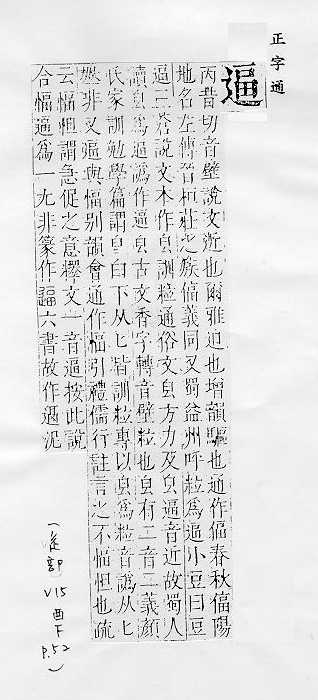 正字通
逼
丙昔切音壁說文近也爾雅迫也增韻驅也通作偪春秋偪陽
地名左傳晉桓莊之族偪義同又蜀益州呼粒為逼小豆曰豆
逼三蒼說文本作皀訓粒通俗文皀方力反皀逼音近故蜀人
讀皀為逼譌作逼皀古文香字轉音壁粒也皀有二音二義顏
氏家訓勉學篇謂皀白下从匕皆訓粒專以皀為粒音譌从匕
非又逼與愊别韻會通作愊引禮儒行註言之不愊怛也疏
云愊怛謂急促之意釋文一音逼按此說
合愊逼為一尤非篆作 六書故作 泥
(辵部
V15
酉下
P.52
)